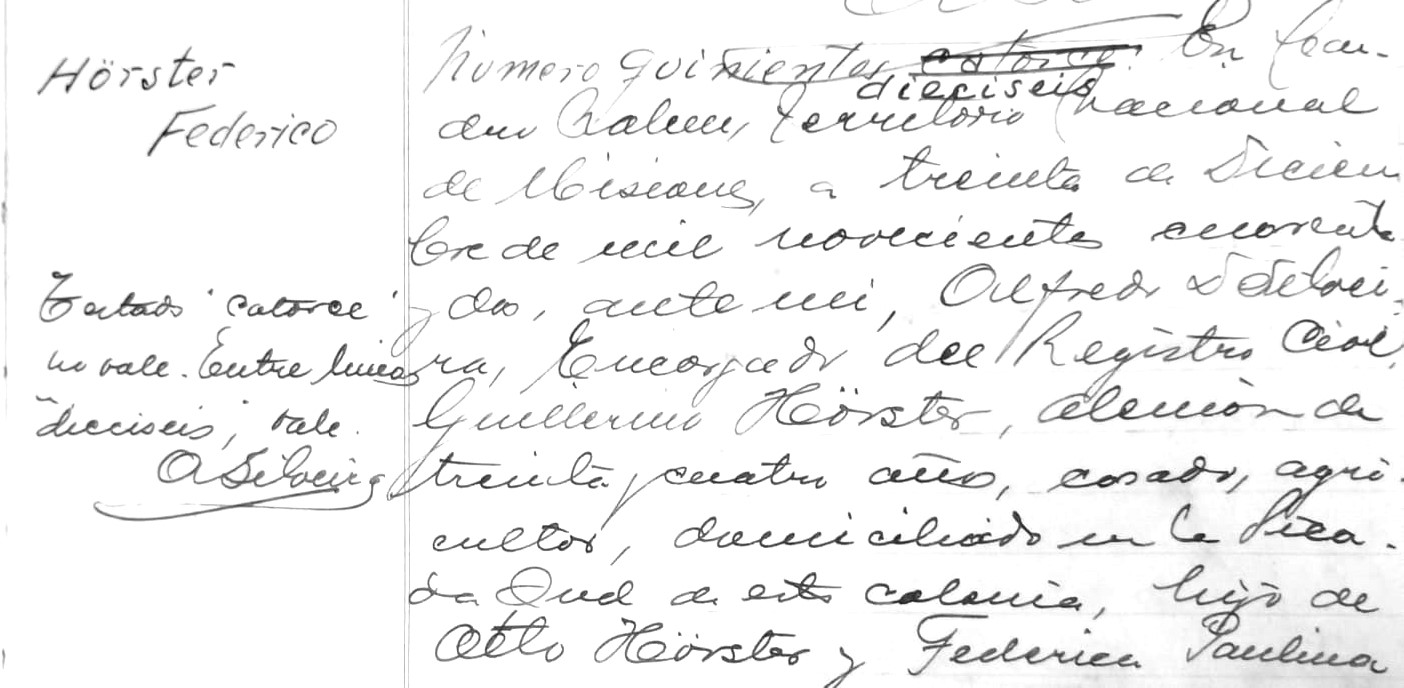 Hörster
Federico
Testado "catorce"
no vale. Entre lineas
"dieciseis", vale.
A Silveira
Número quinientos catorce. En Lean-
dieciseis
dro Alem, Territorio Nacional
de Misiones, a treinta de Diciem
bre de mil novecientos cuarenta
y dos, ante mi, Alfredo D Silvei-
ra, Encargado del Registro Civil,
Guillermo Hörster, alemán de
treinta y cuatro años, casado, agri-
cultor, domiciliado en la Pica-
da Sud de esta colonia, hijo de
Otto Hörster y Federica Paulina